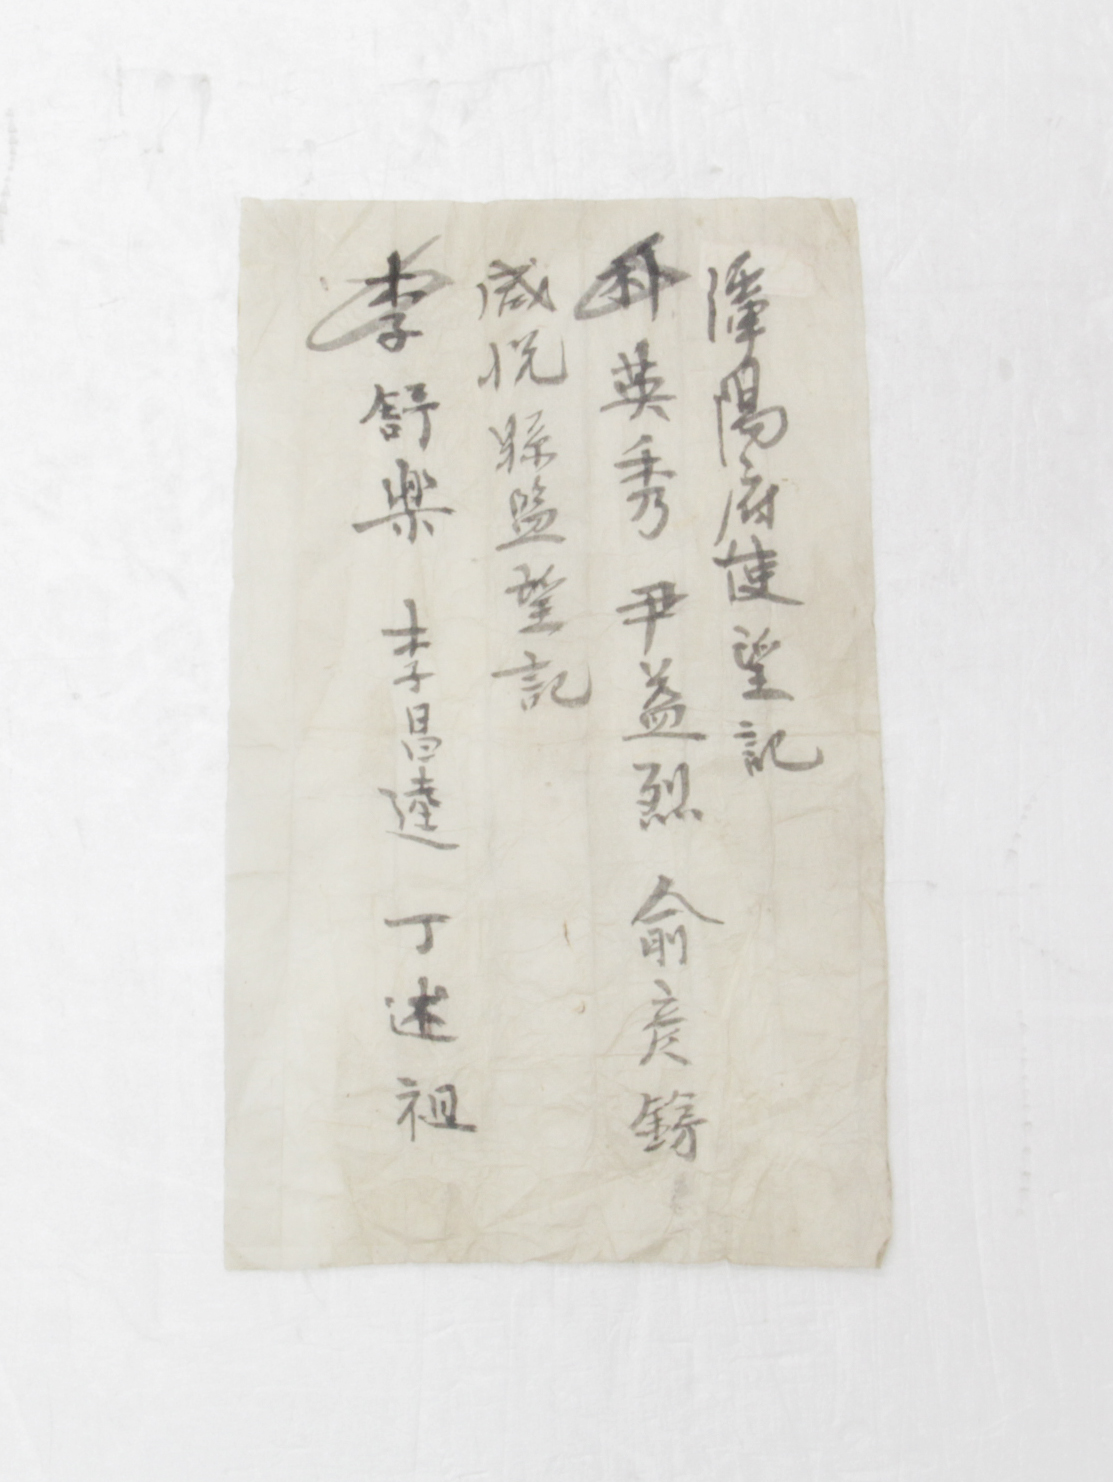 潭陽府使望記
朴英秀 尹益烈 俞彦鎊
咸悅縣監望記
李舒樂 李昌逵 丁述祖